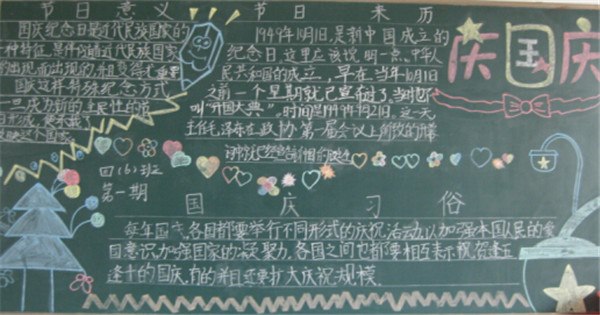 节日意义
国庆纪念日是近代民族国家的
一种特征,是伴随近代民族国家
的出现而出现的,并且变得尤重要
国庆这样特殊纪念方式
一旦成为新的全民性的节
日形式,便承载了
反映这个国家
节日来历
1949年10月1日,是新中国成立的
纪念日.这里应该说明一点,中华人
民共和国的成立,早在当年10月1日
之前一个星期就已宣布过了.当时也不
叫“开国大典”.时间是1949年9月21日.这一天
主任毛泽东在政协第一届会议上所致的
庆国庆
四(6)班
第一期
国庆习俗
每年国庆,各国都要举行不同形式的庆祝活动,以加强本国人民的爱
国意识,加强国家的凝聚力.各国之间也都要相互表示祝贺.逢五
逢十的国庆,有的并且还要扩大庆祝规模.